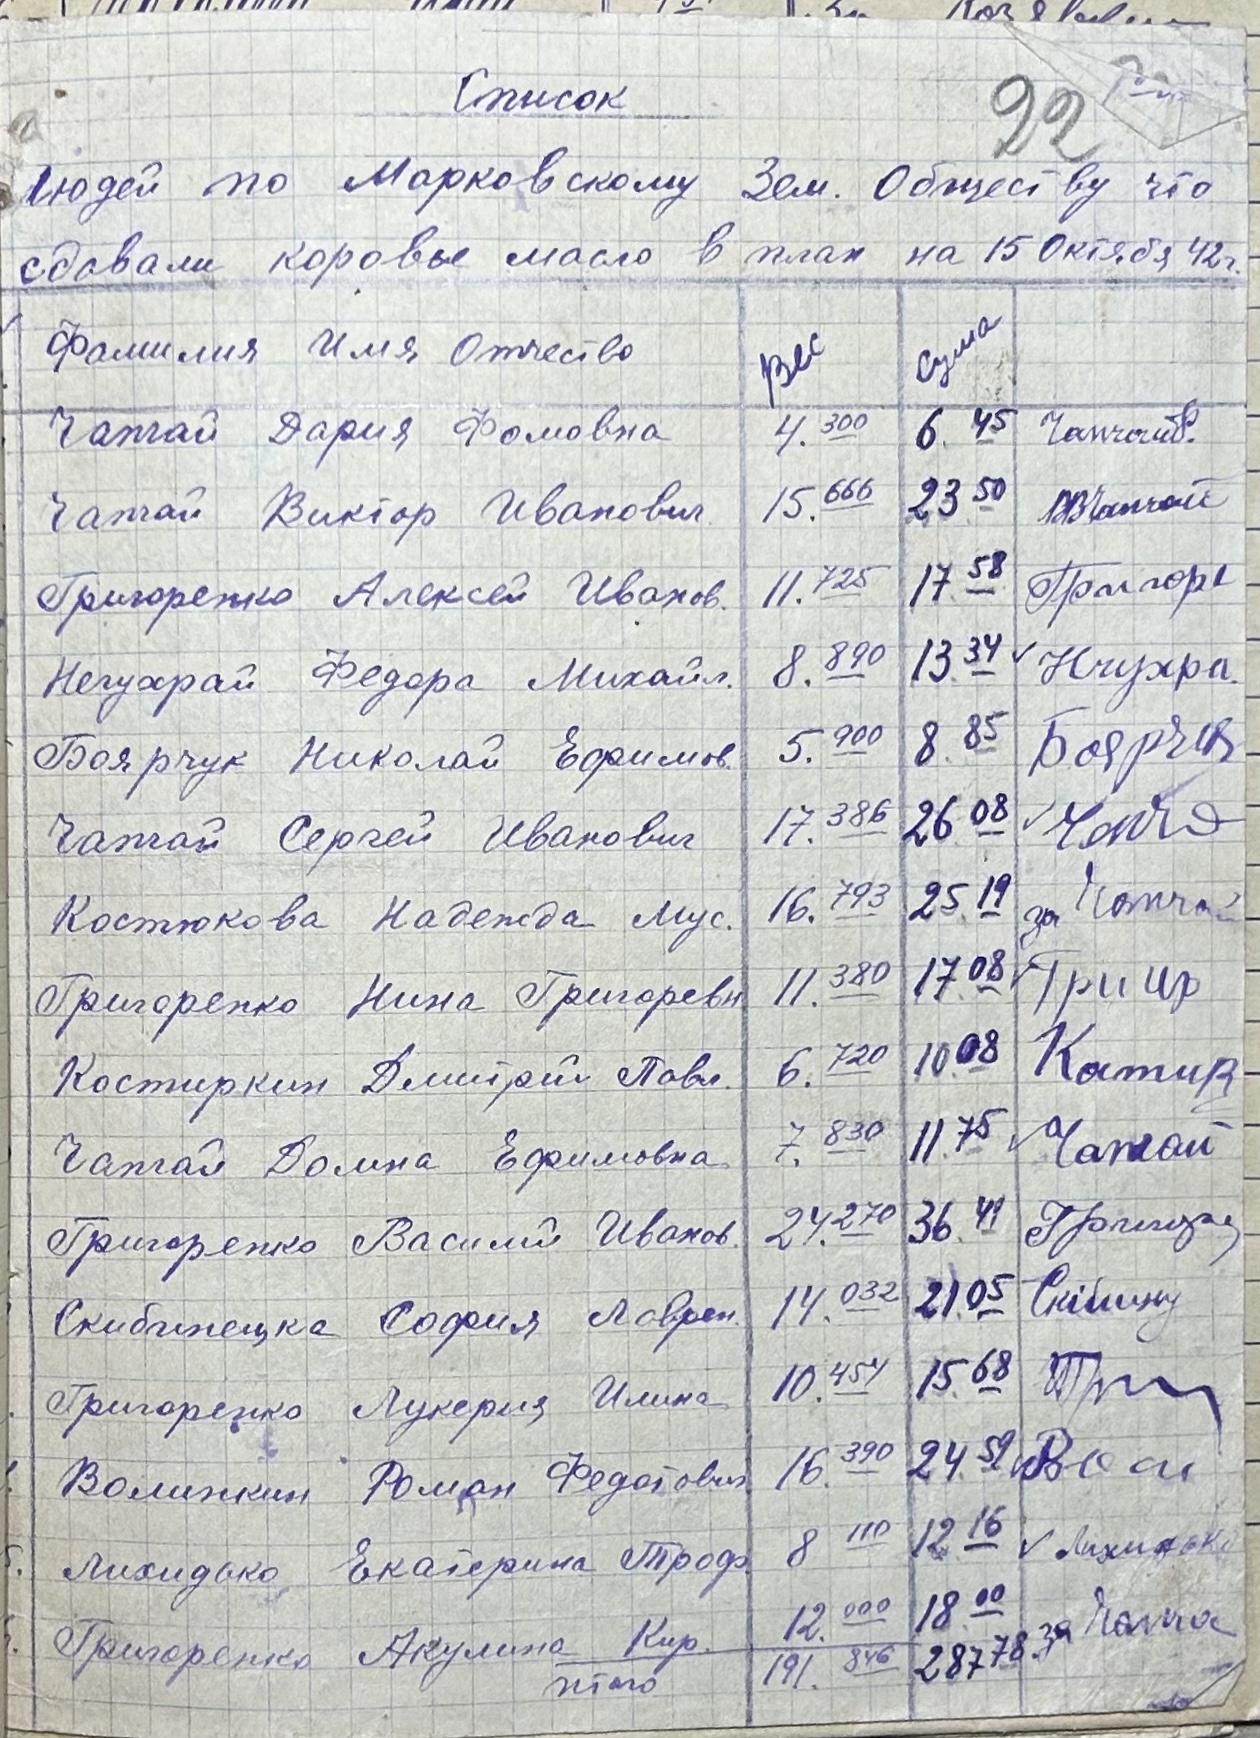 22
Список
Людей по Марковскому Зем. Обществу что
сдавали коровье масло в план на 15 Октября 42г.
Фамилия Имя Отчество Вес Сума
Чапчай Дария Фомовна 4.300 6.45
Чапчай Виктор Иванович 15.666 23 50 Чапчай
Григоренко Алексей Иванов. 11.725 17 58 Григоре
Нечухрай Федора Михайл. 8.890 13.34
Боярчук Николай Ефимов. 5.900 8.85 Боярчук
Чапчай Сергей Иванович 17.386 26 08
Костюкова Надежда Мус. 16.793 25.19 за Чапчай
Григоренко Нина Григоревн 11.380 17 08
Костиркин Дмитрий Павл. 6.720 10 08
Чапчай Домна Ефимовна 7.830 11.75 Чапчай
Григоренко Василий Иванов. 24.270 36.41
Скибинецка София Лаврен. 14.032 21.05
Григоренко Лукерия Илина 10.454 15.68
Волинкин Роман Федотович 16.390 24.59
Лихидько Екатерина Троф. 8 110 12 16
Григоренко Акулина Кир. 12.000 18.00 за
итого 191.846 287 78